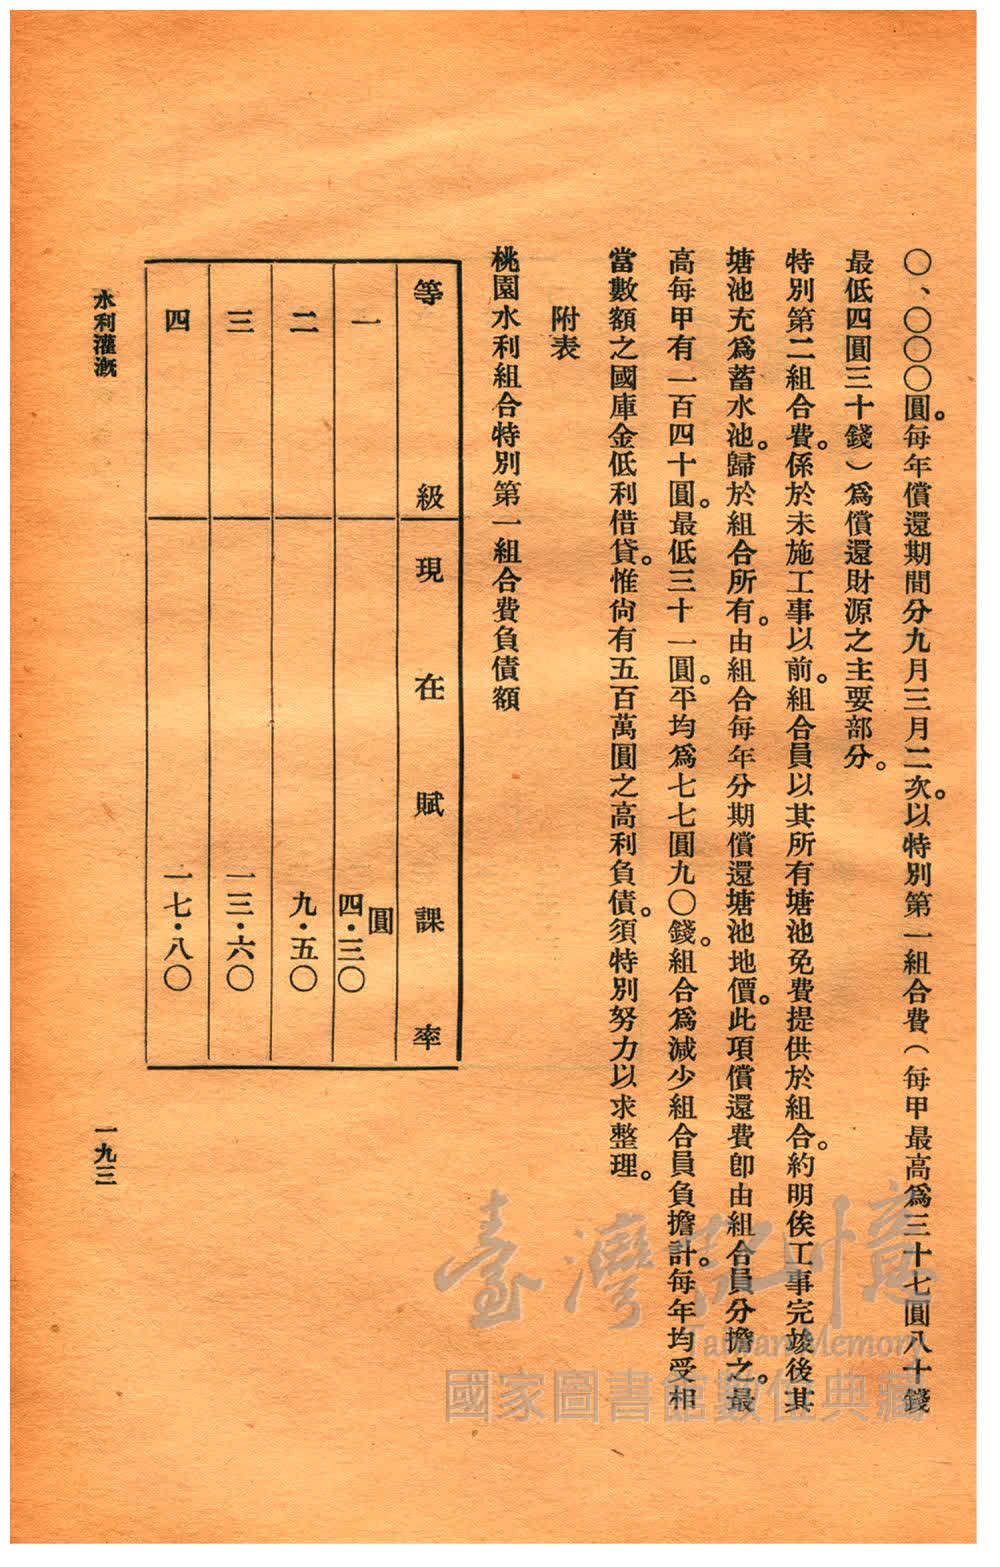 〇、〇〇〇圓。每年償還期間分九月三月二次。以特別第一組合費（每甲最高爲三十七圓八十錢
最低四圓三十錢）爲償還財源之主要部分。
特別第二組合費。係於未施工事以前。組合員以其所有塘池免費提供於組合。約明俟工事完竣後其
塘池充爲蓄水池。歸於組合所有。由組合每年分期償還塘池地價。此項償還費卽由組合員分擔之。最
高每甲有一百四十圓。最低三十一圓。平均爲七七圓九〇錢。組合爲減少組合員負擔計。每年均受相
當數額之國庫金低利借貸。惟尙有五百萬圓之高利負債。須特別努力以求整理。
附表
桃園水利組合特別第一組合費負債額
等級 現在賦課率
一 四·三〇圓
二 九·五〇
三 一三·六〇
四 一七·八〇
水利灌漑
一九三
臺灣記憶
Taiwan Memory
國家圖書館數位典藏